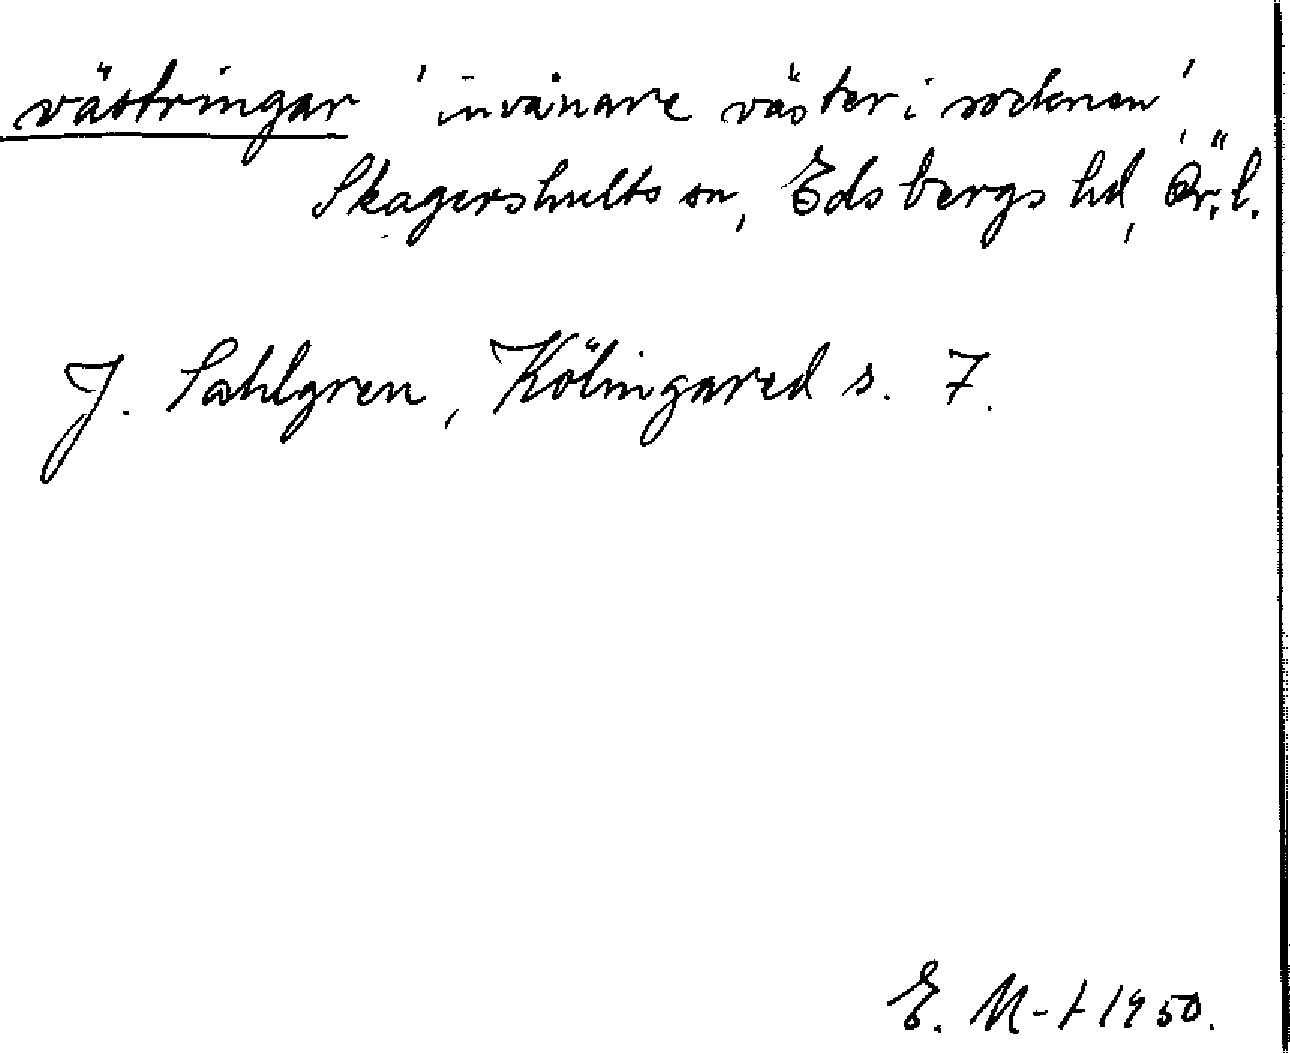 västringar 'invånare väster i socknen',
Skagershults sn, Edsbergs hd, Ör. l.
J. Sahlgren, Kölingared s. 7.
E. M-t 1950.